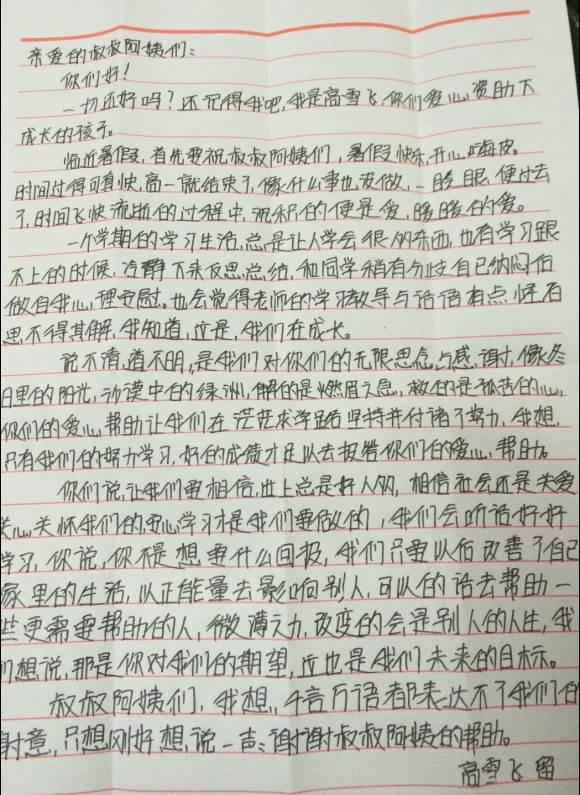 亲爱的叔叔阿姨们：
你们好！
一切还好吗？还记得我吧，我是高雪飞，你们爱心资助下
成长的孩子。
临近暑假，首先要祝叔叔阿姨们，暑假快乐，开心嗨皮。
时间过得可真快，高一就结束了，像什么事也没做，一眨眼，便过去
了，时间飞快流逝的过程中，沉积的便是爱，暖暖的爱。
一个学期的学习生活，总是让人学会很多东西，也有学习跟
不上的时候，冷静下来反思总结，和同学稍有分歧自己纳闷后
做自我心理安慰。也会觉得老师的学习教导与话语有点怪石
思不得其解，我知道，这是，我们在成长。
说不清，道不明，是我们对你们的无限思念与感谢，像冬
日里的阳光，沙漠中的绿洲，解的是燃眉之急，救的是孤苦的心，
你们的爱心，帮助让我们在茫茫求学路坚持并付诸了努力，我想，
只有我们的努力学习，好的成绩才足以去报答你们的爱心，帮助。
你们说，让我们要相信，世上总是好人多，相信社会还是关爱
关心，关怀我们的，安心学习才是我们要做的，我们会听话好好
学习，你说，你不是想要什么回报，我们只要以后改善了自己
家里的生活，以正能量去影响别人，可以的话去帮助一
些更需要帮助的人，微薄之力，改变的会是别人的人生，我
们想说，那是你对我们的期望，这也是我们未来的目标。
叔叔阿姨们，我想，千言万语都表达不了我们的
谢意，只想刚好想说一声：谢谢叔叔阿姨的帮助。
高雪飞 留